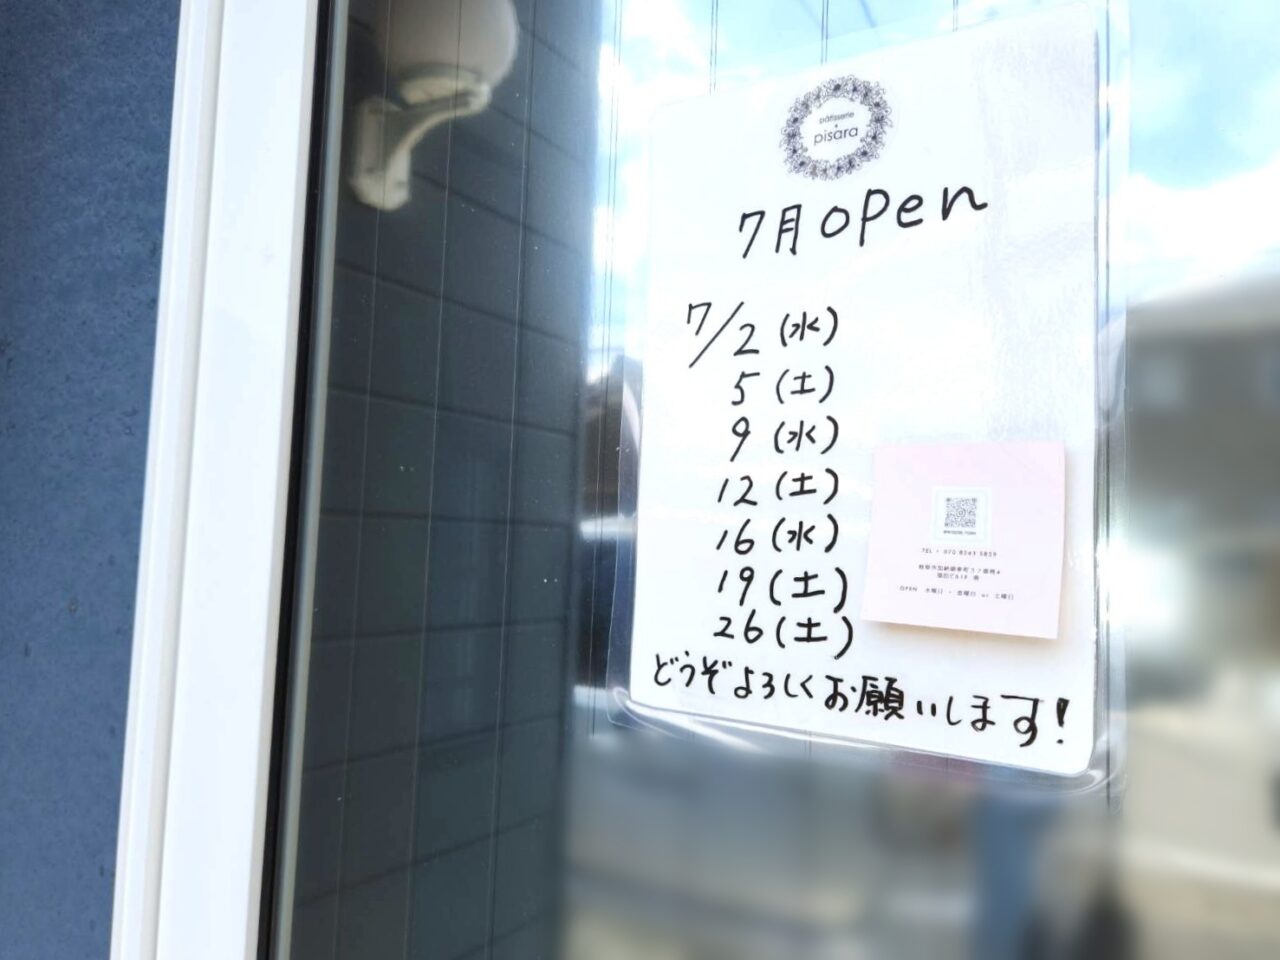 pâtisserie
pisara
7月open
7/2(水)
5(土)
9(水)
12(土)
16(水)
19(土)
26(土)
どうぞよろしくお願いします!
TEL・070 8563 5859
OPEN 水曜日・金曜日 or 土曜日